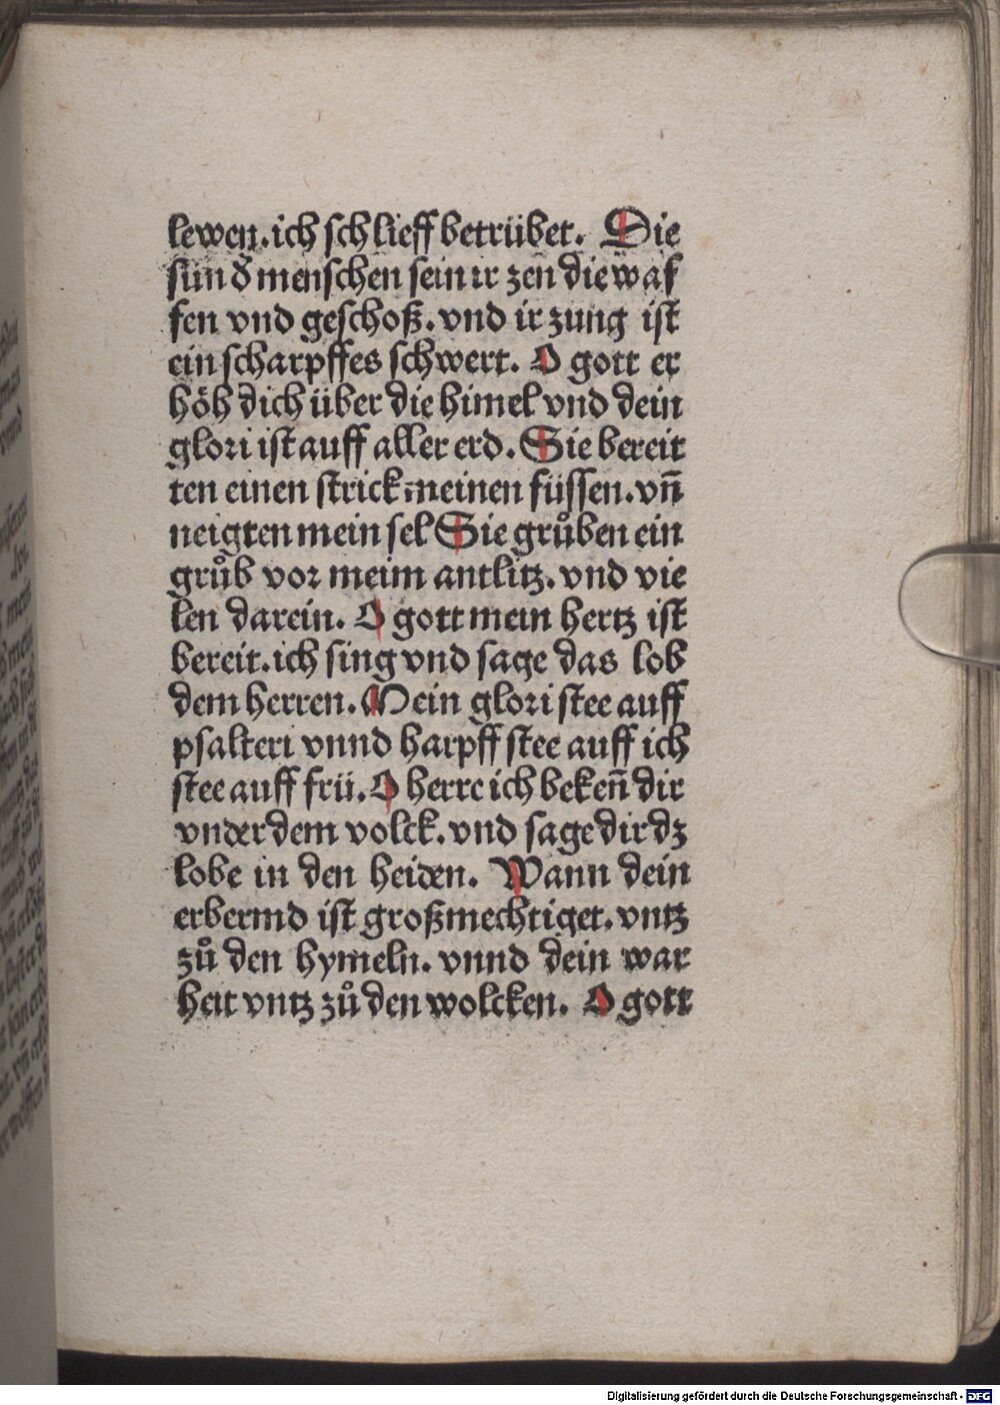 lewen. ich schlieff betrübet. Die
sün d̕ menschen sein ir zen die waf
fen vnd geschoß. vnd ir zung ist
ein scharpffes schwert. O gott er
höh dich über die himel vnd dein
glori ist auff aller erd. Sie bereit
ten einen strick meinen füssen. vn̄
neigten mein sel Sie grůben ein
grůb vor meim antlitz. vnd vie
len darein. O gott mein hertz ist
bereit. ich sing vnd sage das lob
dem herren. Mein glori stee auff
psalteri vnnd harpff stee auff ich
stee auff frü. O herre ich beken̄ dir
vnder dem volck. vnd sage dir dz
lobe in den heiden. Wann dein
erbermd ist großmechtiget. vntz
zů den hymeln. vnnd dein war
heit vntz zů den wolcken. O gott
Digitalisierung gefördert durch die Deutsche Forschungsgemeinschaft - DFG